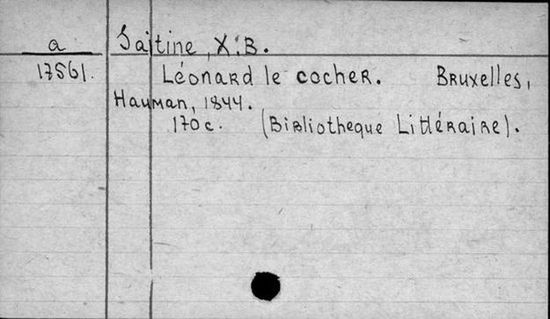 a Saitine, X.B.
17561. Léonard le cocher. Bruxelles,
Hauman, 1844.
170 c. (Bibliotheque Littéraire).